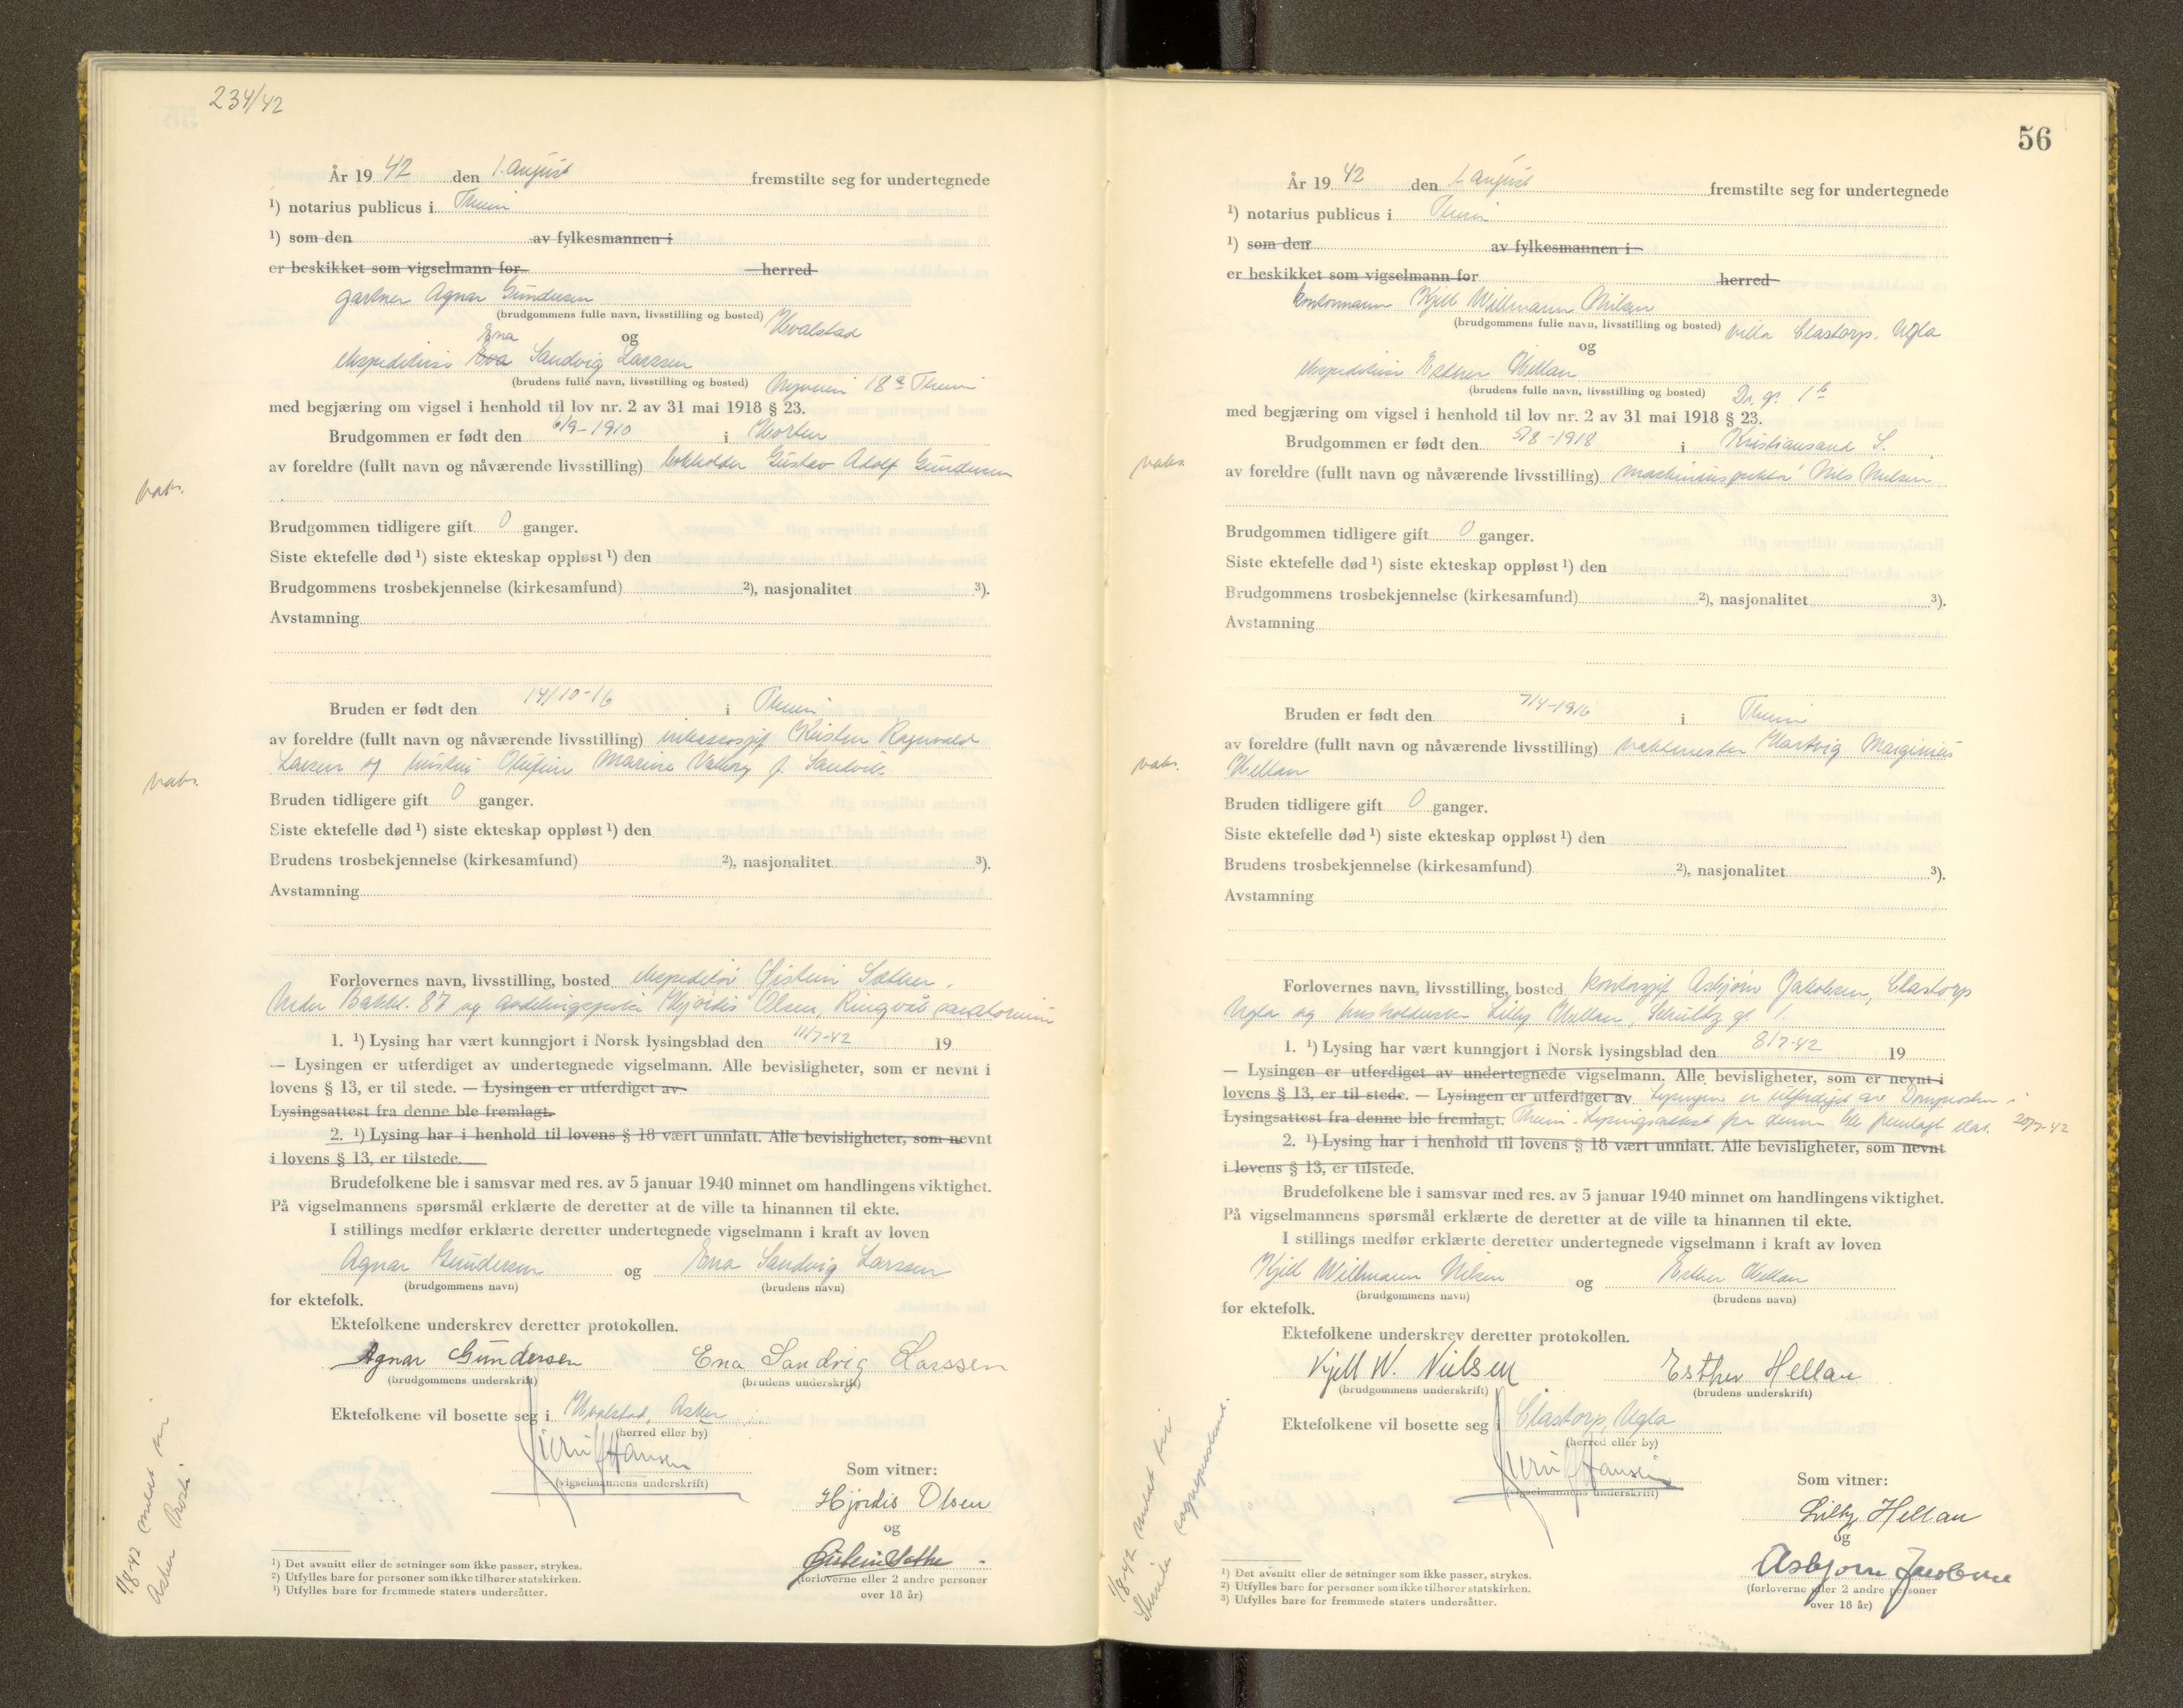 234/42
År 19 42 den 1. august fremstilte seg for undertegnede
1) notarius publicus i Thein
1) som den av fylkesmannen i
er beskikket som vigselmann for herred
gartner Agnar Gundersen
(brudgommens fulle navn, livsstilling og bosted) Hvalstad
Ena og
ekspeditrise Eva Sandvig Larssen
(brudens fulle navn, livsstilling og bosted) 18 a Thein
med begjæring om vigsel i henhold til lov nr. 2 av 31 mai 1918 § 23.
Brudgommen er født den 6/9-1910 i Horten
av foreldre (fullt navn og nåværende livsstilling) bokholder Gustav Adolf Gundersen
vaks.
Brudgommen tidligere gift 0 ganger.
Siste ektefelle død 1) siste ekteskap oppløst 1) den
Brudgommens trosbekjennelse (kirkesamfund) 2), nasjonalitet 3).
Avstamning
Bruden er født den 14/10-16 i Thein
av foreldre (fullt navn og nåværende livsstilling) inkassosjef Kristen Ragnvald
Larsen og hustru Olufine Marine Valborg f. Sandvik
vaks.
Bruden tidligere gift 0 ganger.
Siste ektefelle død 1) siste ekteskap oppløst 1) den
Brudens trosbekjennelse (kirkesamfund) 2), nasjonalitet 3).
Avstamning
Forlovernes navn, livsstilling, bosted ekspeditør Øistein Sæther,
Nedre Bakkl. 87 og Hjørdis Olsen, Ringvål sanatorium
1. 1) Lysing har vært kunngjort i Norsk lysingsblad den 11/7-42 19
— Lysingen er utferdiget av undertegnede vigselmann. Alle bevisligheter, som er nevnt i
lovens § 13, er til stede. — Lysingen er utferdiget av
Lysingsattest fra denne ble fremlagt.
2. 1) Lysing har i henhold til lovens § 18 vært unnlatt. Alle bevisligheter, som nevnt
i lovens § 13, er tilstede.
Brudefolkene ble i samsvar med res. av 5 januar 1940 minnet om handlingens viktighet.
På vigselmannens spørsmål erklærte de deretter at de ville ta hinannen til ekte.
I stillings medfør erklærte deretter undertegnede vigselmann i kraft av loven
Agnar Gundersen og Ena Sandvig Larssen
(brudgommens navn) (brudens navn)
for ektefolk.
Ektefolkene underskrev deretter protokollen.
Agnar Gundersen Ena Sandvig Larssen
(brudgommens underskrift) (brudens underskrift)
Ektefolkene vil bosette seg i Hvalstad, Asker
(herred eller by)
Hansen
(vigselmannens underskrift)
Som vitner:
Hjördis Olsen
og
Øistein Sæther
(forloverne eller 2 andre personer
over 18 år)
1/8-42 meldt til
Asker
1) Det avsnitt eller de setninger som ikke passer, strykes.
2) Utfylles bare for personer som ikke tilhører statskirken.
3) Utfylles bare for fremmede staters undersåtter.
56
År 19 42 den 1. august fremstilte seg for undertegnede
1) notarius publicus i Thein
1) som den av fylkesmannen i
er beskikket som vigselmann for herred
kontormann Kjell Willmann Nilsen
(brudgommens fulle navn, livsstilling og bosted) villa Clastorp, Ugla
og
ekspeditrise Esther Hellan
(brudens fulle navn, livsstilling og bosted) Dr. gt. 1 b
med begjæring om vigsel i henhold til lov nr. 2 av 31 mai 1918 § 23.
Brudgommen er født den 5/8-1918 i Kristiansand S.
av foreldre (fullt navn og nåværende livsstilling) maskininspektør Nils Nilsen
vaks.
Brudgommen tidligere gift 0 ganger.
Siste ektefelle død 1) siste ekteskap oppløst 1) den
Brudgommens trosbekjennelse (kirkesamfund) 2), nasjonalitet 3).
Avstamning
Bruden er født den 7/4-1916 i Thein
av foreldre (fullt navn og nåværende livsstilling) vaktmester Hartvig Marginius
Hellan
vaks.
Bruden tidligere gift 0 ganger.
Siste ektefelle død 1) siste ekteskap oppløst 1) den
Brudens trosbekjennelse (kirkesamfund) 2), nasjonalitet 3).
Avstamning
Forlovernes navn, livsstilling, bosted kontorsjef Asbjørn Jakobsen, Clastorp
Ugla og husholderske Lilly Hellan, Schultz gt 1.
1. 1) Lysing har vært kunngjort i Norsk lysingsblad den 8/7-42 19
— Lysingen er utferdiget av undertegnede vigselmann. Alle bevisligheter, som er nevnt i
lovens § 13, er til stede. — Lysingen er utferdiget av Lysingen er utferdiget av Domprosten i
Lysingsattest fra denne ble fremlagt. Thein. Lysingsattest fra denne ble fremlagt dat. 20/7-42
2. 1) Lysing har i henhold til lovens § 18 vært unnlatt. Alle bevisligheter, som nevnt
i lovens § 13, er tilstede.
Brudefolkene ble i samsvar med res. av 5 januar 1940 minnet om handlingens viktighet.
På vigselmannens spørsmål erklærte de deretter at de ville ta hinannen til ekte.
I stillings medfør erklærte deretter undertegnede vigselmann i kraft av loven
Kjell Willmann Nilsen og Esther Hellan
(brudgommens navn) (brudens navn)
for ektefolk.
Ektefolkene underskrev deretter protokollen.
Kjell W. Nilsen Esther Hellan
(brudgommens underskrift) (brudens underskrift)
Ektefolkene vil bosette seg i Clastorp, Ugla
(herred eller by)
Hansen
(vigselmannens underskrift)
Som vitner:
Lilly Hellan
og
Asbjørn Jacobsen
(forloverne eller 2 andre personer
over 18 år)
1/8-42 meldt til
sogneprestemb.
1) Det avsnitt eller de setninger som ikke passer, strykes.
2) Utfylles bare for personer som ikke tilhører statskirken.
3) Utfylles bare for fremmede staters undersåtter.